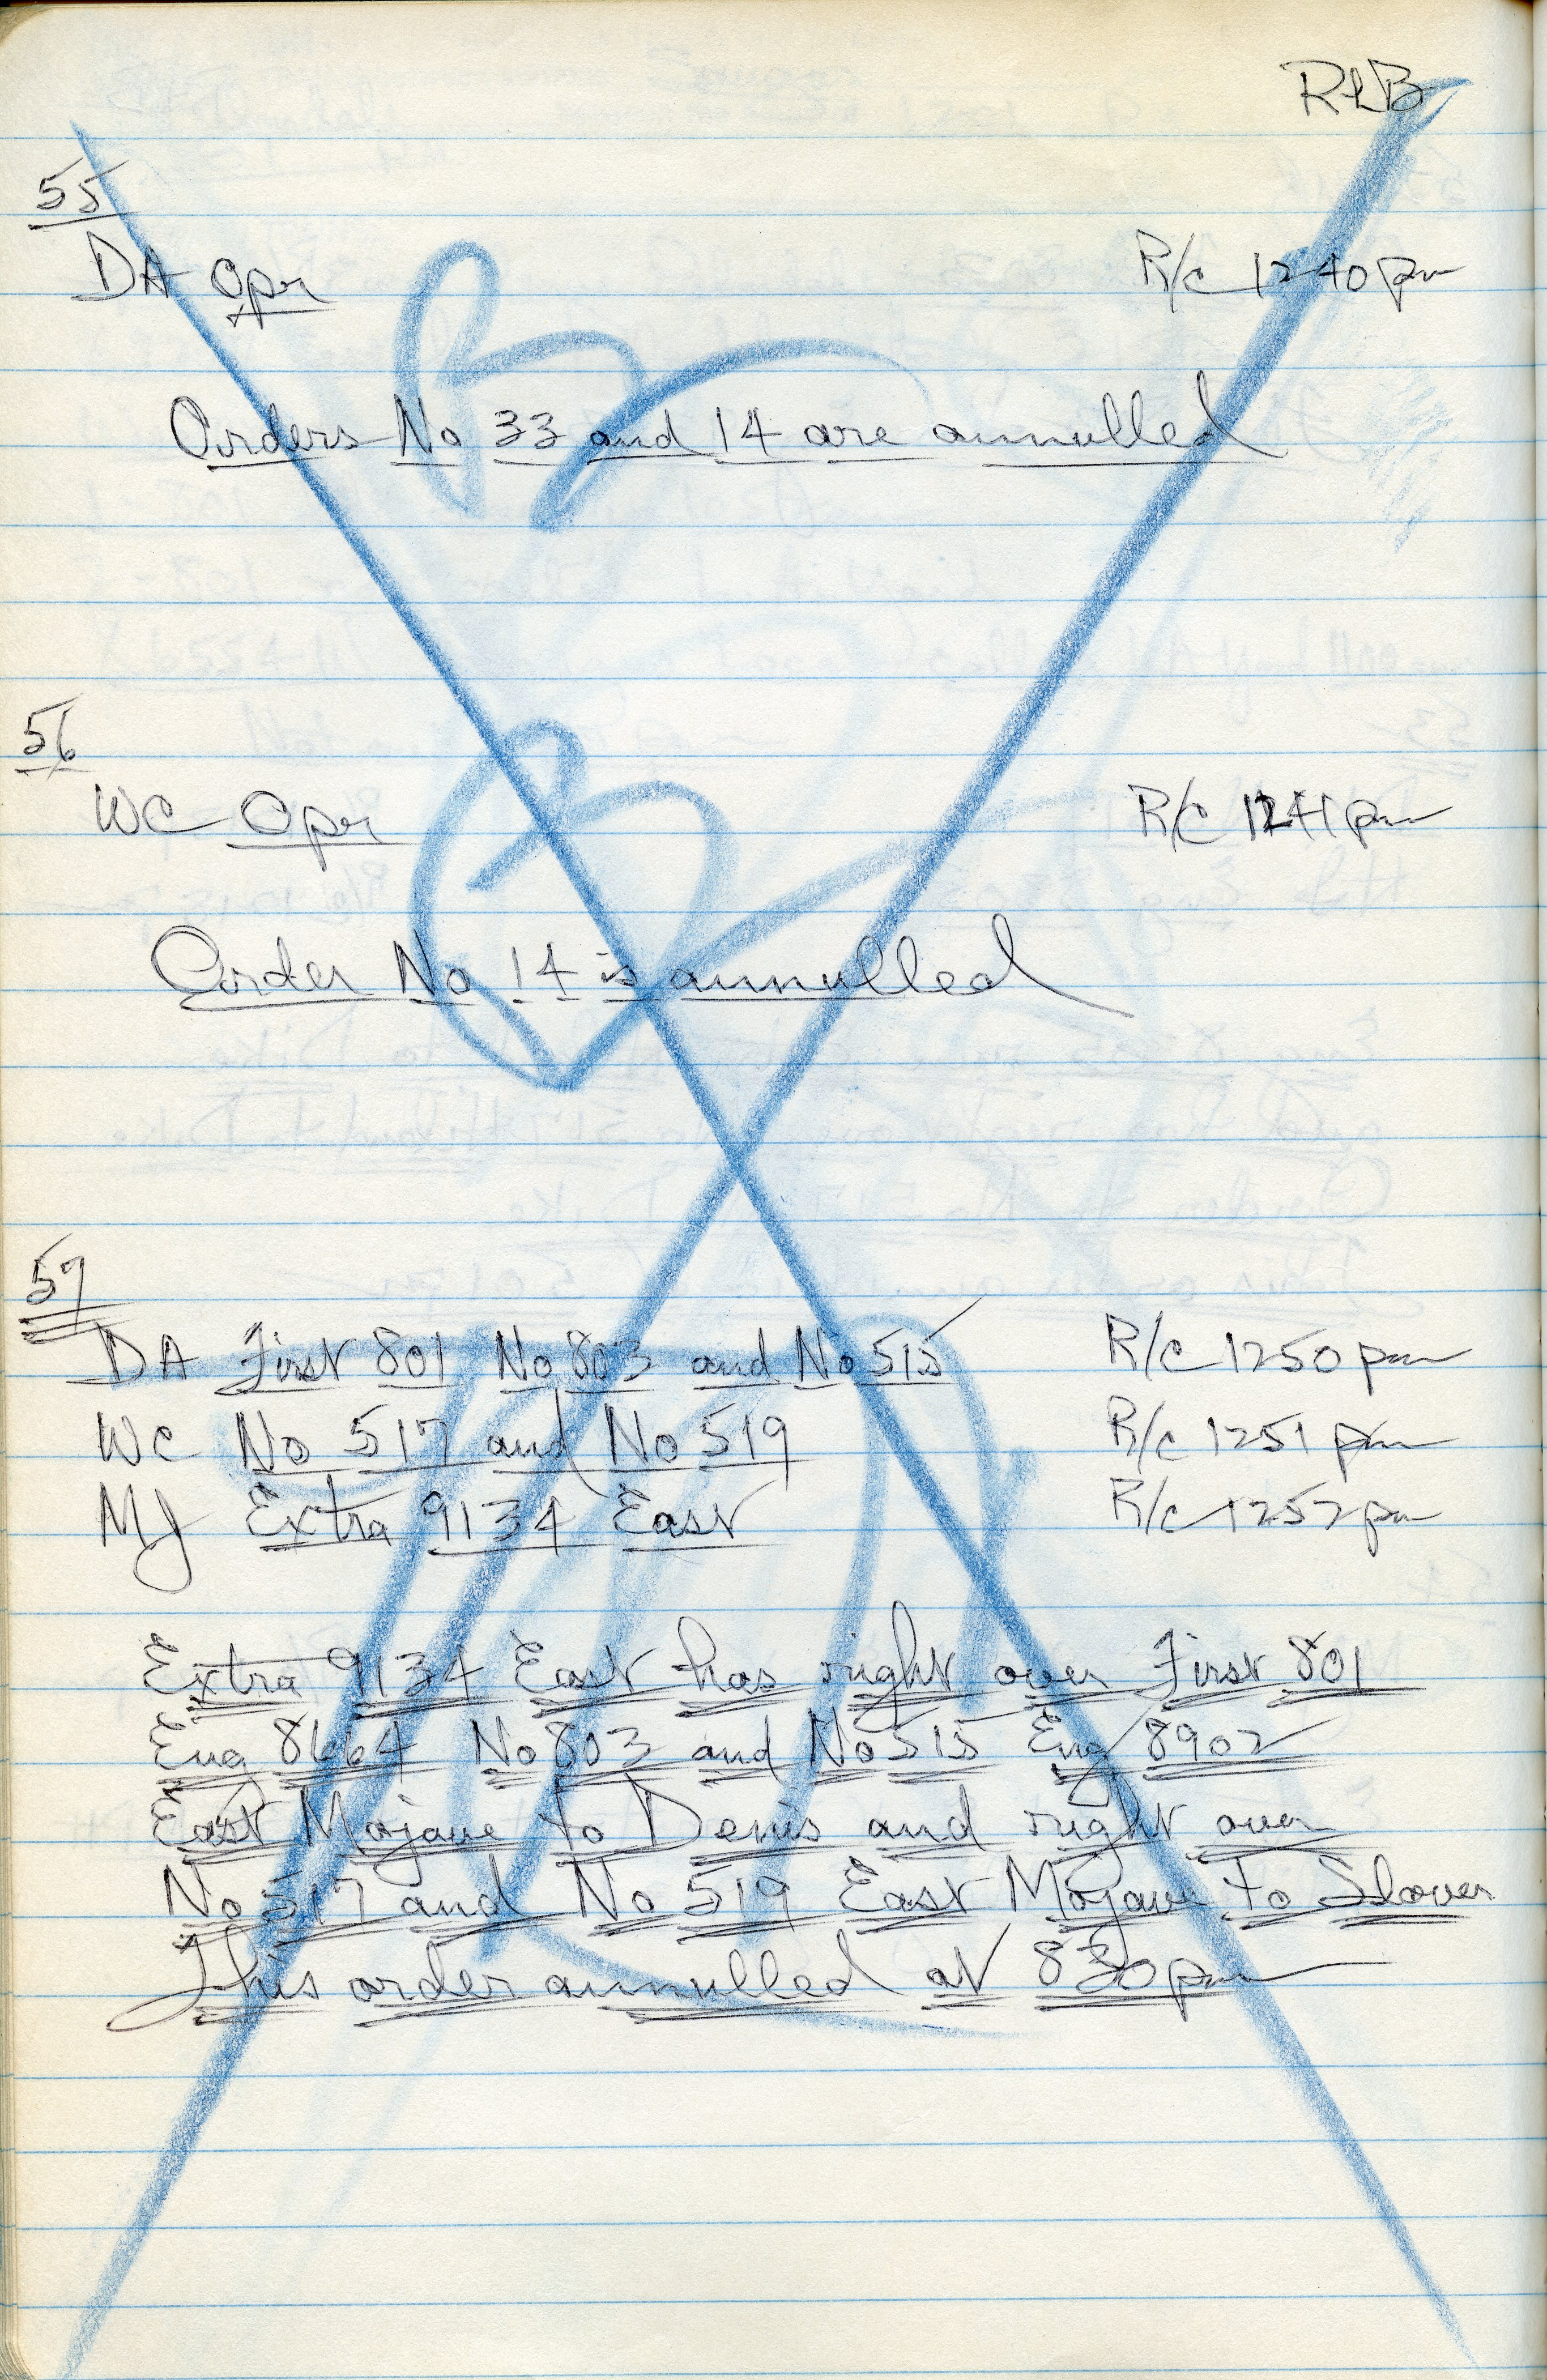 RLB
55
DA Opr R/c 1240 pm
Orders No 33 and 14 are annulled
56
WC Opr R/c 1241 pm
Order No 14 is annulled
57
DA First 801 No 803 and No 515 R/c 1250 pm
WC No 517 and No 519 R/c 1251 pm
MJ Extra 9134 East R/c 1252 pm
Extra 9134 East has right over First 801
Eng 8664 No 803 and No 515 Eng 8902
East Mojave to Denis and right over
No 517 and No 519 East Mojave to Slover
This order annulled at 830 pm